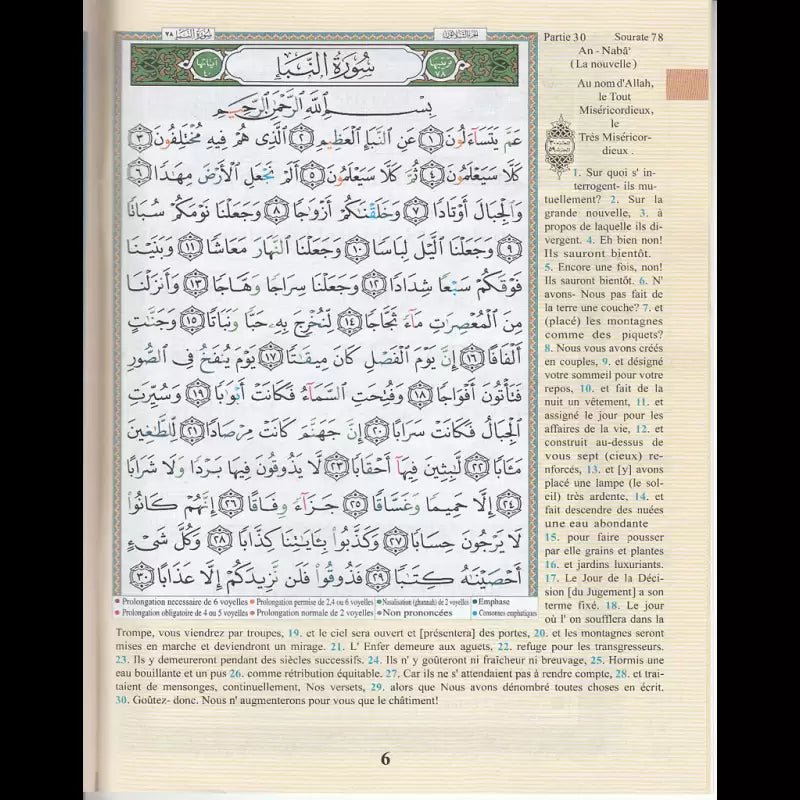 سُورَةُ النَّبَإِ ٧٨
الجزء الثلاثون
آيَاتُهَا ٤٠
سُورَةُ النَّبَإِ
تَرْتِيبُهَا ٧٨
بِسْمِ ٱللَّهِ ٱلرَّحْمَٰنِ ٱلرَّحِيمِ
عَمَّ يَتَسَآءَلُونَ ١ عَنِ ٱلنَّبَإِ ٱلْعَظِيمِ ٢ ٱلَّذِى هُمْ فِيهِ مُخْتَلِفُونَ ٣
كَلَّا سَيَعْلَمُونَ ٤ ثُمَّ كَلَّا سَيَعْلَمُونَ ٥ أَلَمْ نَجْعَلِ ٱلْأَرْضَ مِهَٰدًا ٦
وَٱلْجِبَالَ أَوْتَادًا ٧ وَخَلَقْنَٰكُمْ أَزْوَٰجًا ٨ وَجَعَلْنَا نَوْمَكُمْ سُبَاتًا
٩ وَجَعَلْنَا ٱلَّيْلَ لِبَاسًا ١٠ وَجَعَلْنَا ٱلنَّهَارَ مَعَاشًا ١١ وَبَنَيْنَا
فَوْقَكُمْ سَبْعًا شِدَادًا ١٢ وَجَعَلْنَا سِرَاجًا وَهَّاجًا ١٣ وَأَنزَلْنَا
مِنَ ٱلْمُعْصِرَٰتِ مَآءً ثَجَّاجًا ١٤ لِّنُخْرِجَ بِهِۦ حَبًّا وَنَبَاتًا ١٥ وَجَنَّٰتٍ
أَلْفَافًا ١٦ إِنَّ يَوْمَ ٱلْفَصْلِ كَانَ مِيقَٰتًا ١٧ يَوْمَ يُنفَخُ فِى ٱلصُّورِ
فَتَأْتُونَ أَفْوَاجًا ١٨ وَفُتِحَتِ ٱلسَّمَآءُ فَكَانَتْ أَبْوَٰبًا ١٩ وَسُيِّرَتِ
ٱلْجِبَالُ فَكَانَتْ سَرَابًا ٢٠ إِنَّ جَهَنَّمَ كَانَتْ مِرْصَادًا ٢١ لِّلطَّٰغِينَ
مَـَٔابًا ٢٢ لَّٰبِثِينَ فِيهَآ أَحْقَابًا ٢٣ لَّا يَذُوقُونَ فِيهَا بَرْدًا وَلَا شَرَابًا
٢٤ إِلَّا حَمِيمًا وَغَسَّاقًا ٢٥ جَزَآءً وِفَاقًا ٢٦ إِنَّهُمْ كَانُوا۟
لَا يَرْجُونَ حِسَابًا ٢٧ وَكَذَّبُوا۟ بِـَٔايَٰتِنَا كِذَّابًا ٢٨ وَكُلَّ شَىْءٍ
أَحْصَيْنَٰهُ كِتَٰبًا ٢٩ فَذُوقُوا۟ فَلَن نَّزِيدَكُمْ إِلَّا عَذَابًا ٣٠
Prolongation necessaire de 6 voyelles Prolongation permise de 2,4 ou 6 voyelles Nasalisation (ghunnah) de 2 voyelles Emphase
Prolongation obligatoire de 4 ou 5 voyelles Prolongation normale de 2 voyelles Non prononcées Consonnes emphatiques
Partie 30 Sourate 78
An - Nabâ'
(La nouvelle)
Au nom d'Allah,
le Tout
Miséricordieux,
le
Très Miséricor-
dieux .
1. Sur quoi s' in-
terrogent- ils mu-
tuellement? 2. Sur la
grande nouvelle, 3. à
propos de laquelle ils di-
vergent. 4. Eh bien non!
Ils sauront bientôt.
5. Encore une fois, non!
Ils sauront bientôt. 6. N'
avons- Nous pas fait de
la terre une couche? 7. et
(placé) les montagnes
comme des piquets?
8. Nous vous avons créés
en couples, 9. et désigné
votre sommeil pour votre
repos, 10. et fait de la
nuit un vêtement, 11. et
assigné le jour pour les
affaires de la vie, 12. et
construit au-dessus de
vous sept (cieux) ren-
forcés, 13. et [y] avons
placé une lampe (le sol-
eil) très ardente, 14. et
fait descendre des nuées
une eau abondante
15. pour faire pousser
par elle grains et plantes
16. et jardins luxuriants.
17. Le Jour de la Déci-
sion [du Jugement] a son
terme fixé. 18. Le jour
où l' on soufflera dans la
Trompe, vous viendrez par troupes, 19. et le ciel sera ouvert et [présentera] des portes, 20. et les montagnes seront
mises en marche et deviendront un mirage. 21. L' Enfer demeure aux aguets, 22. refuge pour les transgresseurs.
23. Ils y demeureront pendant des siècles successifs. 24. Ils n' y goûteront ni fraîcheur ni breuvage, 25. Hormis une
eau bouillante et un pus 26. comme rétribution équitable. 27. Car ils ne s' attendaient pas à rendre compte, 28. et trai-
taient de mensonges, continuellement, Nos versets, 29. alors que Nous avons dénombré toutes choses en écrit.
30. Goûtez- donc. Nous n' augmenterons pour vous que le châtiment!
6